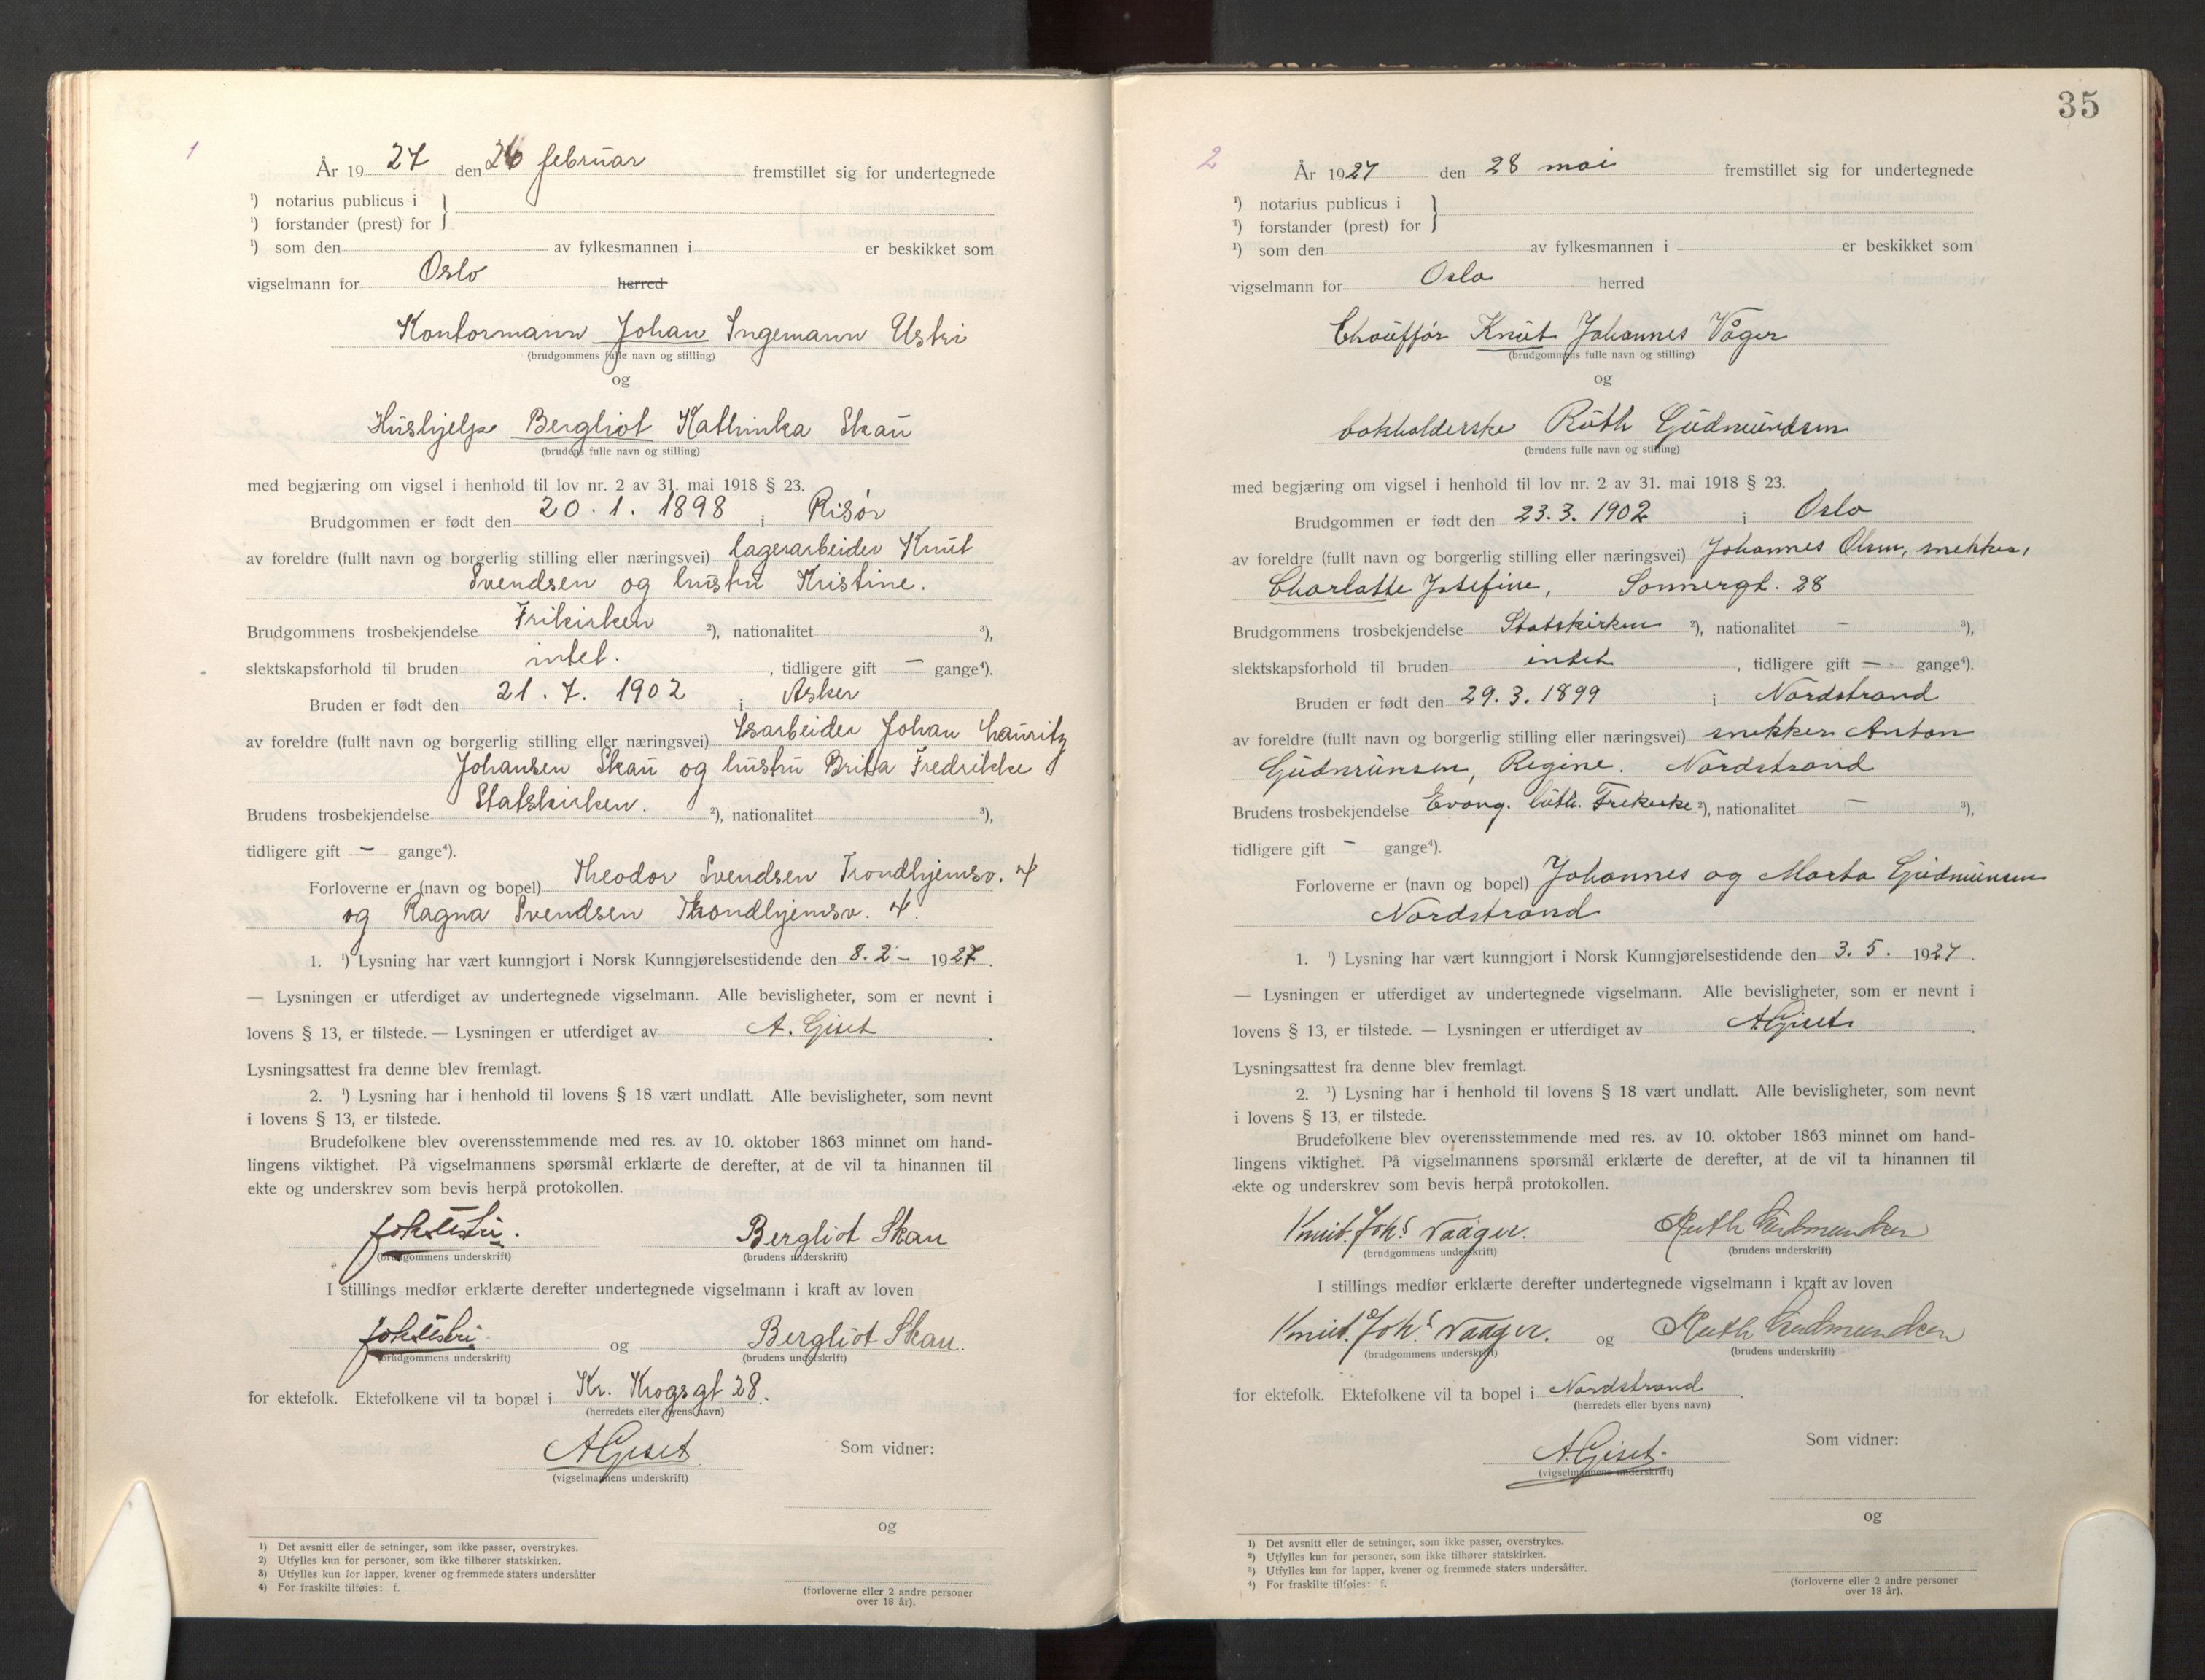 1
År 1927 den 26 februar fremstillet sig for undertegnede
¹) notarius publicus i }
¹) forstander (prest) for }
¹) som den av fylkesmannen i er beskikket som
vigselmann for Oslo herred
Kontormann Johan Ingemann Ustri
(brudgommens fulle navn og stilling)
og
Hushjelp Bergliot Kathinka Skau
(brudens fulle navn og stilling)
med begjæring om vigsel i henhold til lov nr. 2 av 31. mai 1918 § 23.
Brudgommen er født den 20. 1. 1898 i Risør
av foreldre (fullt navn og borgerlig stilling eller næringsvei) lagerarbeider Knut
Svendsen og hustru Kristine.
Brudgommens trosbekjendelse Frikirken ²), nationalitet ³),
slektskapsforhold til bruden intet. , tidligere gift — gange⁴).
Bruden er født den 21. 7. 1902 i Asker
av foreldre (fullt navn og borgerlig stilling eller næringsvei) Isarbeider Johan Lauritz
Johansen Skau og hustru Brita Fredrikke
Brudens trosbekjendelse Statskirken. ²), nationalitet ³),
tidligere gift — gange⁴).
Forloverne er (navn og bopel) Theodor Svendsen Trondhjemsv. 4
og Ragna Svendsen Trondhjemsv. 4.
1. ¹) Lysning har vært kunngjort i Norsk Kunngjørelsestidende den 8. 2 – 1927.
— Lysningen er utferdiget av undertegnede vigselmann. Alle bevisligheter, som er nevnt i
lovens § 13, er tilstede. — Lysningen er utferdiget av A. Giset.
Lysningsattest fra denne blev fremlagt.
2. ¹) Lysning har i henhold til lovens § 18 vært undlatt. Alle bevisligheter, som nevnt
i lovens § 13, er tilstede.
Brudefolkene blev overensstemmende med res. av 10. oktober 1863 minnet om hand-
lingens viktighet. På vigselmannens spørsmål erklærte de derefter, at de vil ta hinannen til
ekte og underskrev som bevis herpå protokollen.
Joh Ustri. Bergliot Skau
(brudgommens underskrift) (brudens underskrift)
I stillings medfør erklærte derefter undertegnede vigselmann i kraft av loven
Joh Ustri. og Bergliot Skau.
(brudgommens underskrift) (brudens underskrift)
for ektefolk. Ektefolkene vil ta bopæl i Kr. Krogsgt 28.
(herredets eller byens navn)
A Giset Som vidner:
(vigselmannens underskrift)
og
1) Det avsnitt eller de setninger, som ikke passer, overstrykes.
2) Utfylles kun for personer, som ikke tilhører statskirken.
3) Utfylles kun for lapper, kvener og fremmede staters undersåtter
4) For fraskilte tilføies: f.
(forloverne eller 2 andre personer
over 18 år).
35
2
År 1927 den 28 mai fremstillet sig for undertegnede
¹) notarius publicus i }
¹) forstander (prest) for }
¹) som den av fylkesmannen i er beskikket som
vigselmann for Oslo herred
Chauffør Knut Johannes Våger
(brudgommens fulle navn og stilling)
og
bokholderske Ruth Gudmundsen
(brudens fulle navn og stilling)
med begjæring om vigsel i henhold til lov nr. 2 av 31. mai 1918 § 23.
Brudgommen er født den 23. 3. 1902 i Oslo
av foreldre (fullt navn og borgerlig stilling eller næringsvei) Johannes Olsen, snekker,
Charlotte Josefine, Sannergt. 28
Brudgommens trosbekjendelse Statskirken ²), nationalitet – ³),
slektskapsforhold til bruden intet , tidligere gift — gange⁴).
Bruden er født den 29. 3. 1899 i Nordstrand
av foreldre (fullt navn og borgerlig stilling eller næringsvei) snekker Anton
Gudmunsen, Regine. Nordstrand
Brudens trosbekjendelse Evang. luth. Frikirke ²), nationalitet — ³),
tidligere gift – gange⁴).
Forloverne er (navn og bopel) Johannes og Marta Gudmunsen
Nordstrand
1. ¹) Lysning har vært kunngjort i Norsk Kunngjørelsestidende den 3. 5. 1927.
— Lysningen er utferdiget av undertegnede vigselmann. Alle bevisligheter, som er nevnt i
lovens § 13, er tilstede. — Lysningen er utferdiget av A Giset.
Lysningsattest fra denne blev fremlagt.
2. ¹) Lysning har i henhold til lovens § 18 vært undlatt. Alle bevisligheter, som nevnt
i lovens § 13, er tilstede.
Brudefolkene blev overensstemmende med res. av 10. oktober 1863 minnet om hand-
lingens viktighet. På vigselmannens spørsmål erklærte de derefter, at de vil ta hinannen til
ekte og underskrev som bevis herpå protokollen.
Knut. Johs Vaager. Ruth Gudmundsen
(brudgommens underskrift) (brudens underskrift)
I stillings medfør erklærte derefter undertegnede vigselmann i kraft av loven
Knut. Johs Vaager. og Ruth Gudmundsen
(brudgommens underskrift) (brudens underskrift)
for ektefolk. Ektefolkene vil ta bopel i Nordstrand.
(herredets eller byens navn)
A. Giset. Som vidner:
(vigselmannens underskrift)
og
1) Det avsnitt eller de setninger, som ikke passer, overstrykes.
²) Utfylles kun for personer, som ikke tilhører statskirken.
³) Utfylles kun for lapper, kvener og fremmede staters undersåtter.
⁴) For fraskilte tilføies: f.
(forloverne eller 2 andre personer
over 18 år).